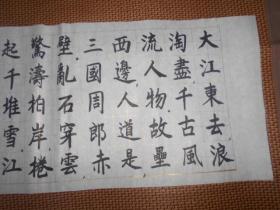 大江東去浪
淘盡千古風
流人物故壘
西邊人道是
三國周郎赤
壁亂石穿雲
驚濤拍岸捲
起千堆雪江